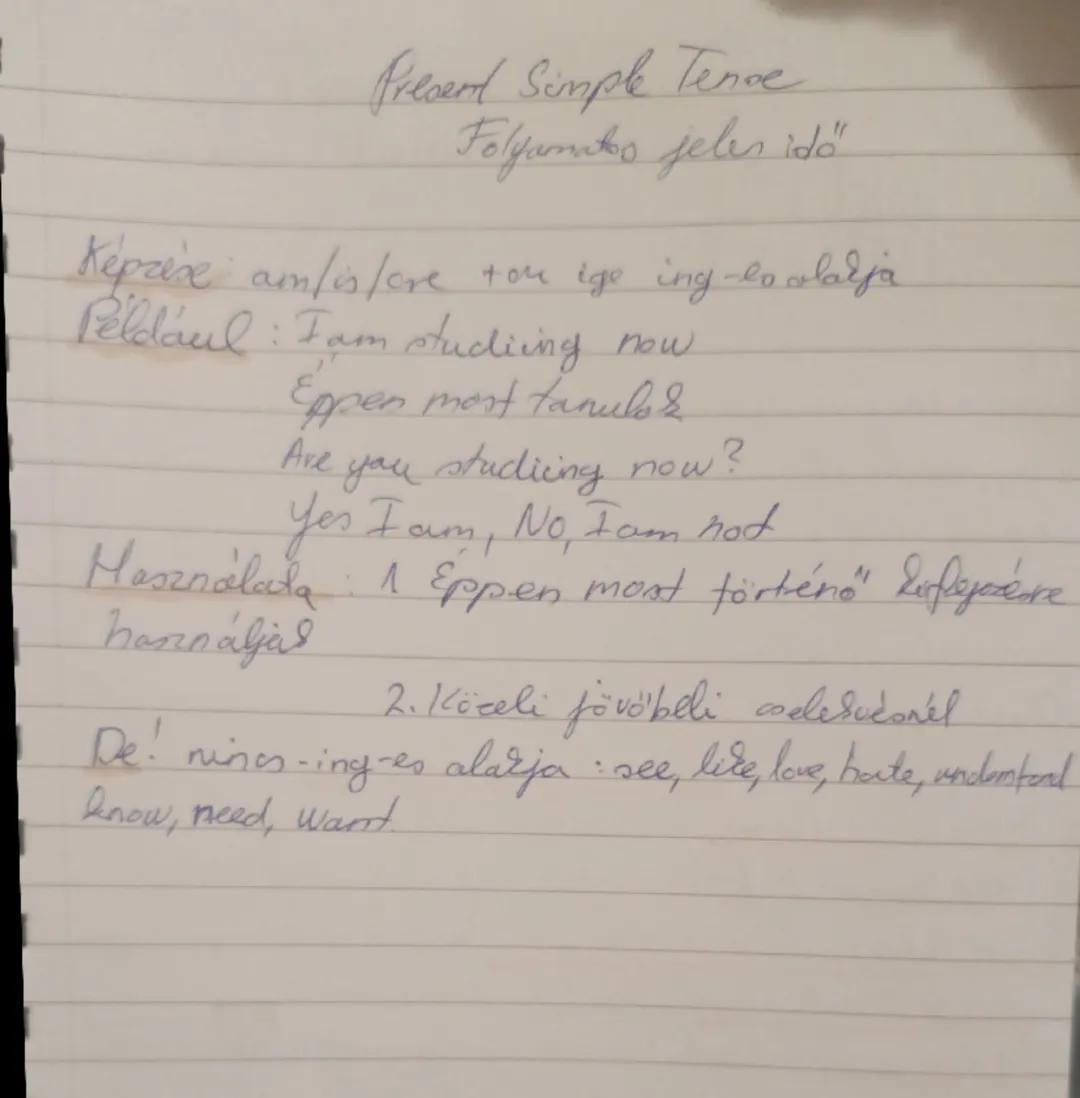 Present Simple Tense
Folyamatos jelen idő
Képzése: am/is/are + az ige ing-es alakja
Például: I am studiing now
Éppen most tanulok
Are you studiing now?
Yes I am, No, I am not
Használata: 1 Éppen most történő kifejezésre
használjuk
2. Közeli jövőbeli cselekvésnél
De! nincs -ing-es alakja: see, like, love, hate, understand
know, need, want.